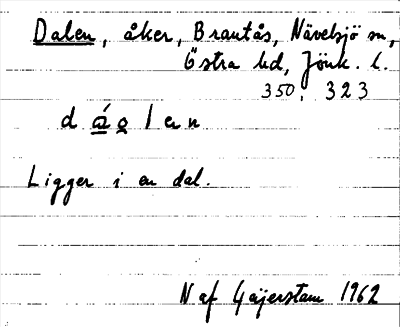 Dalen, åker, Brautås, Nävelsjö sn,
Östra hd, Jönk. l.
350, 323
d á o l e n
Ligger i en dal.
N af Gäijerstam 1962